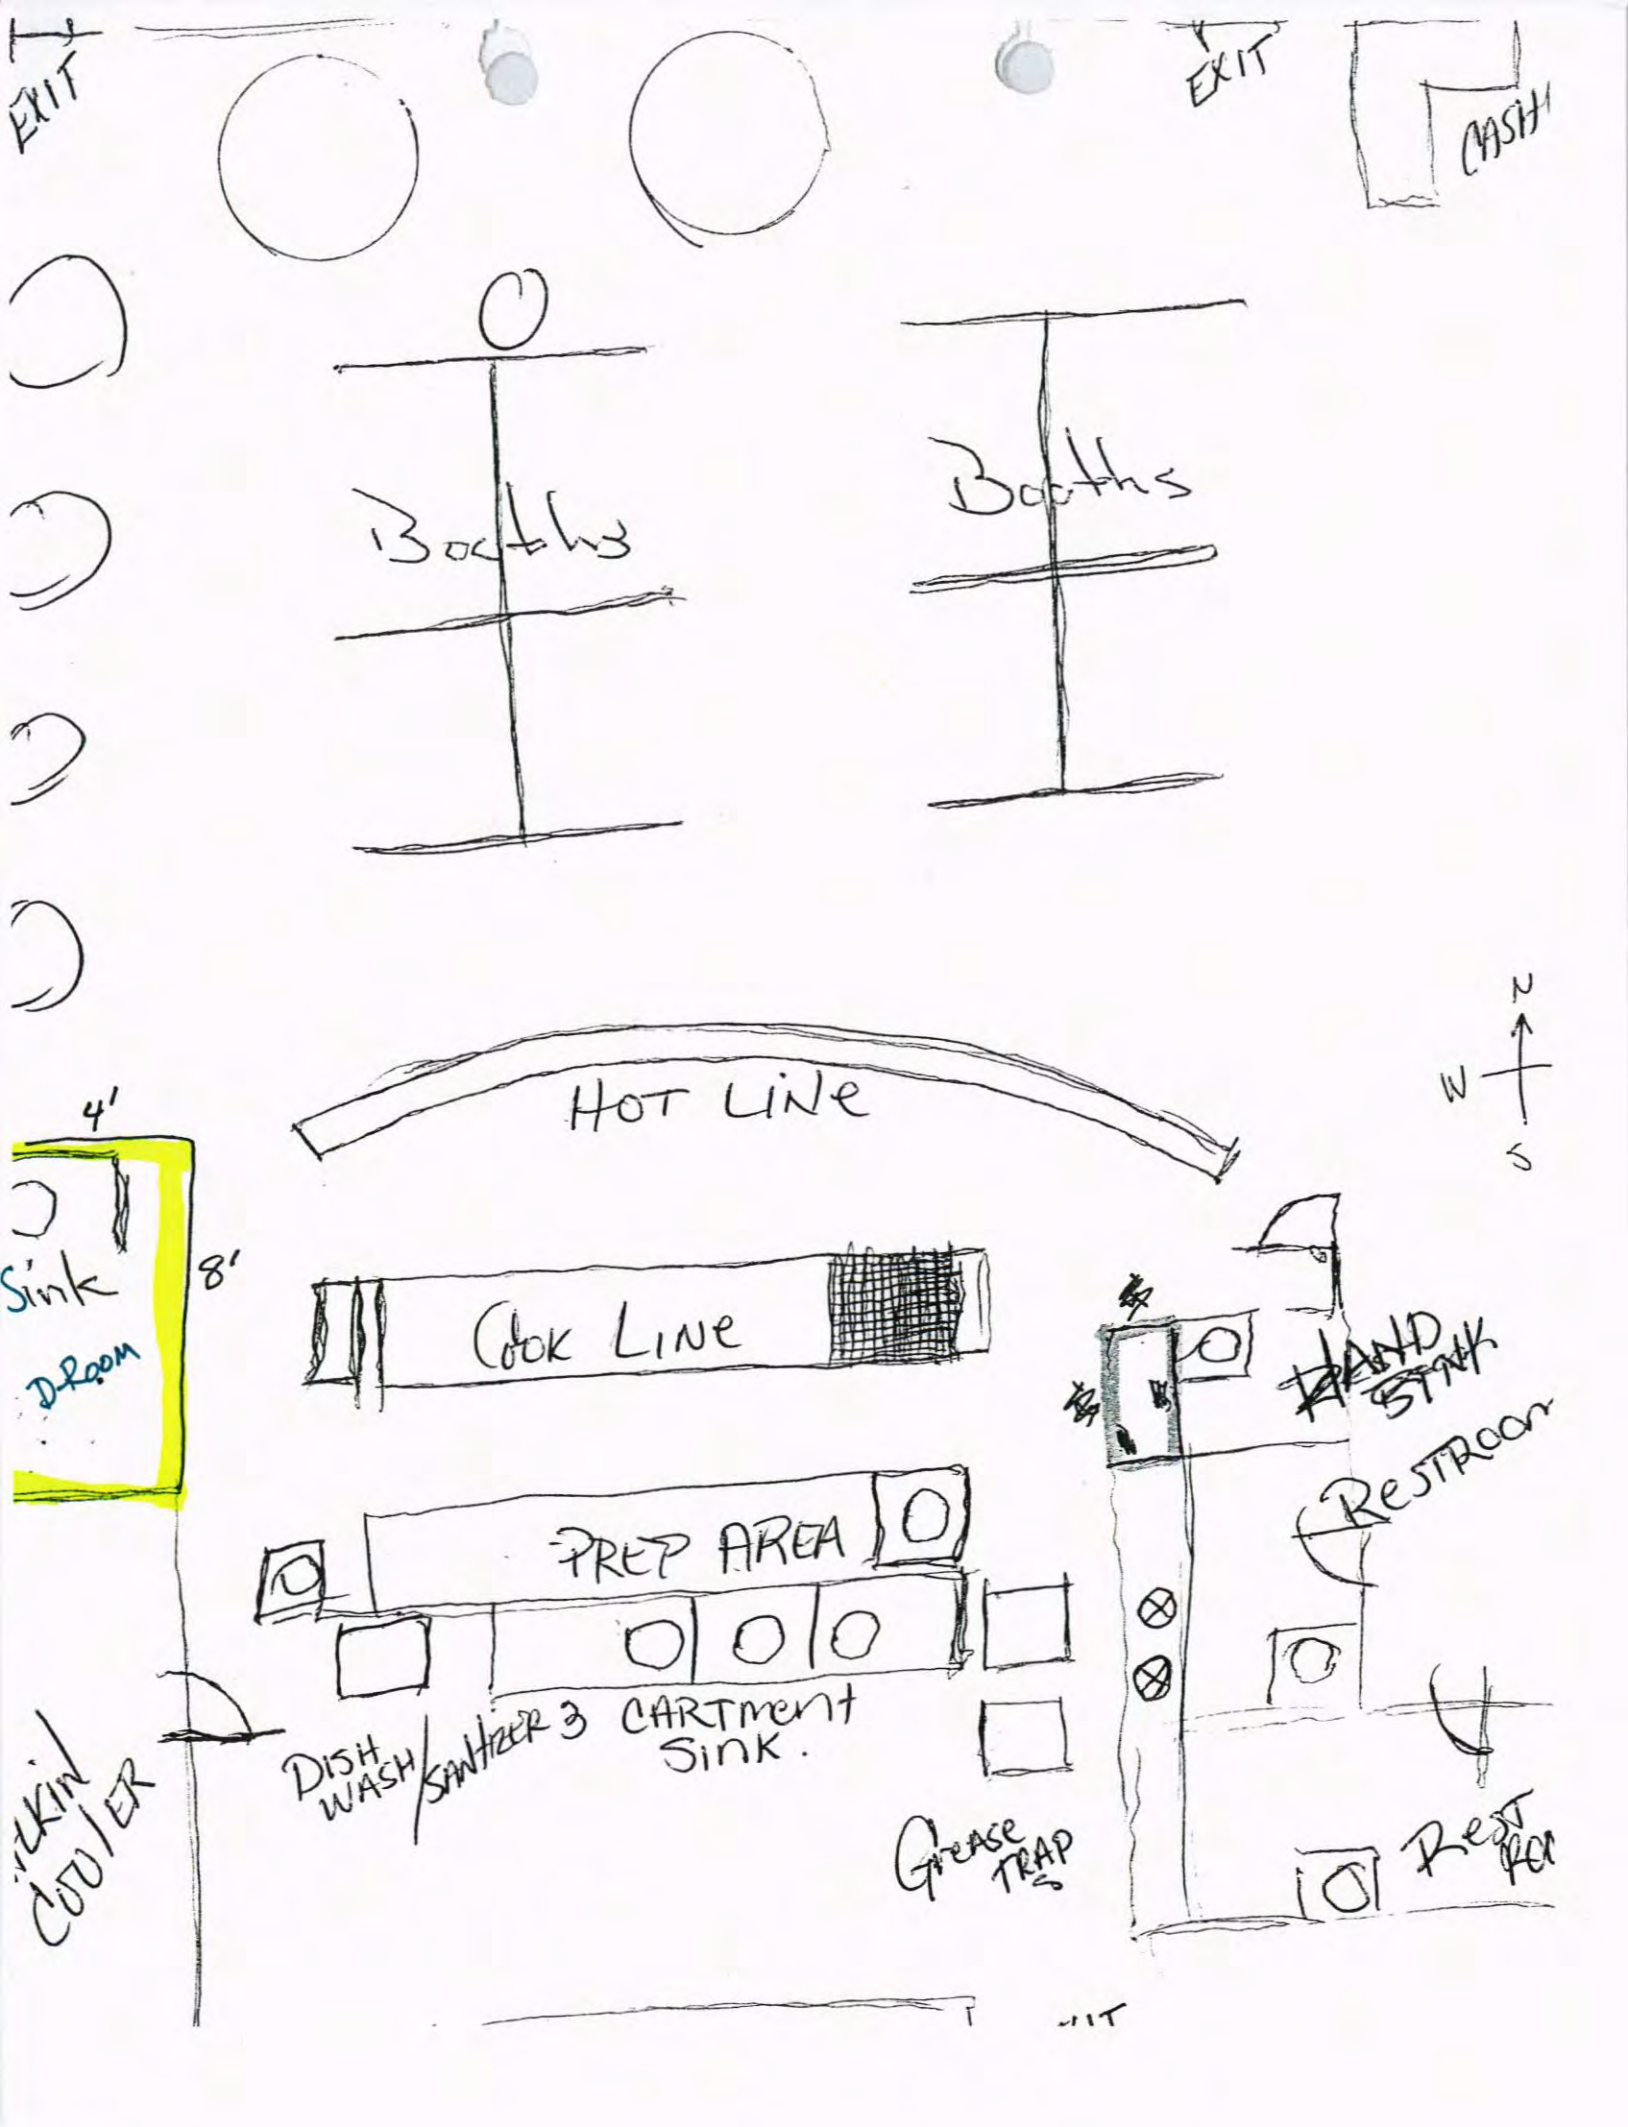 EXIT
EXIT
CASH
Booths
Booths
N
W
S
HOT LINE
4'
8'
Sink
D-ROOM
COOK LINE
HAND
SINK
RESTROOM
PREP AREA
DISH
WASH/SANITIZER
3 CARTMENT
SINK.
COOLER
GREASE
TRAP
S
REST